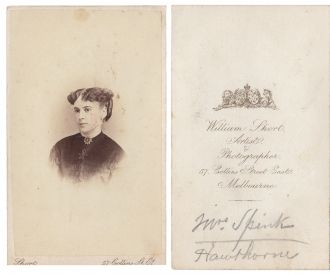 Short
57 Collins St. Et.
William Short,
Artist
&
Photographer
57 Collins Street East
Melbourne
Mrs Spink
Hawthorne